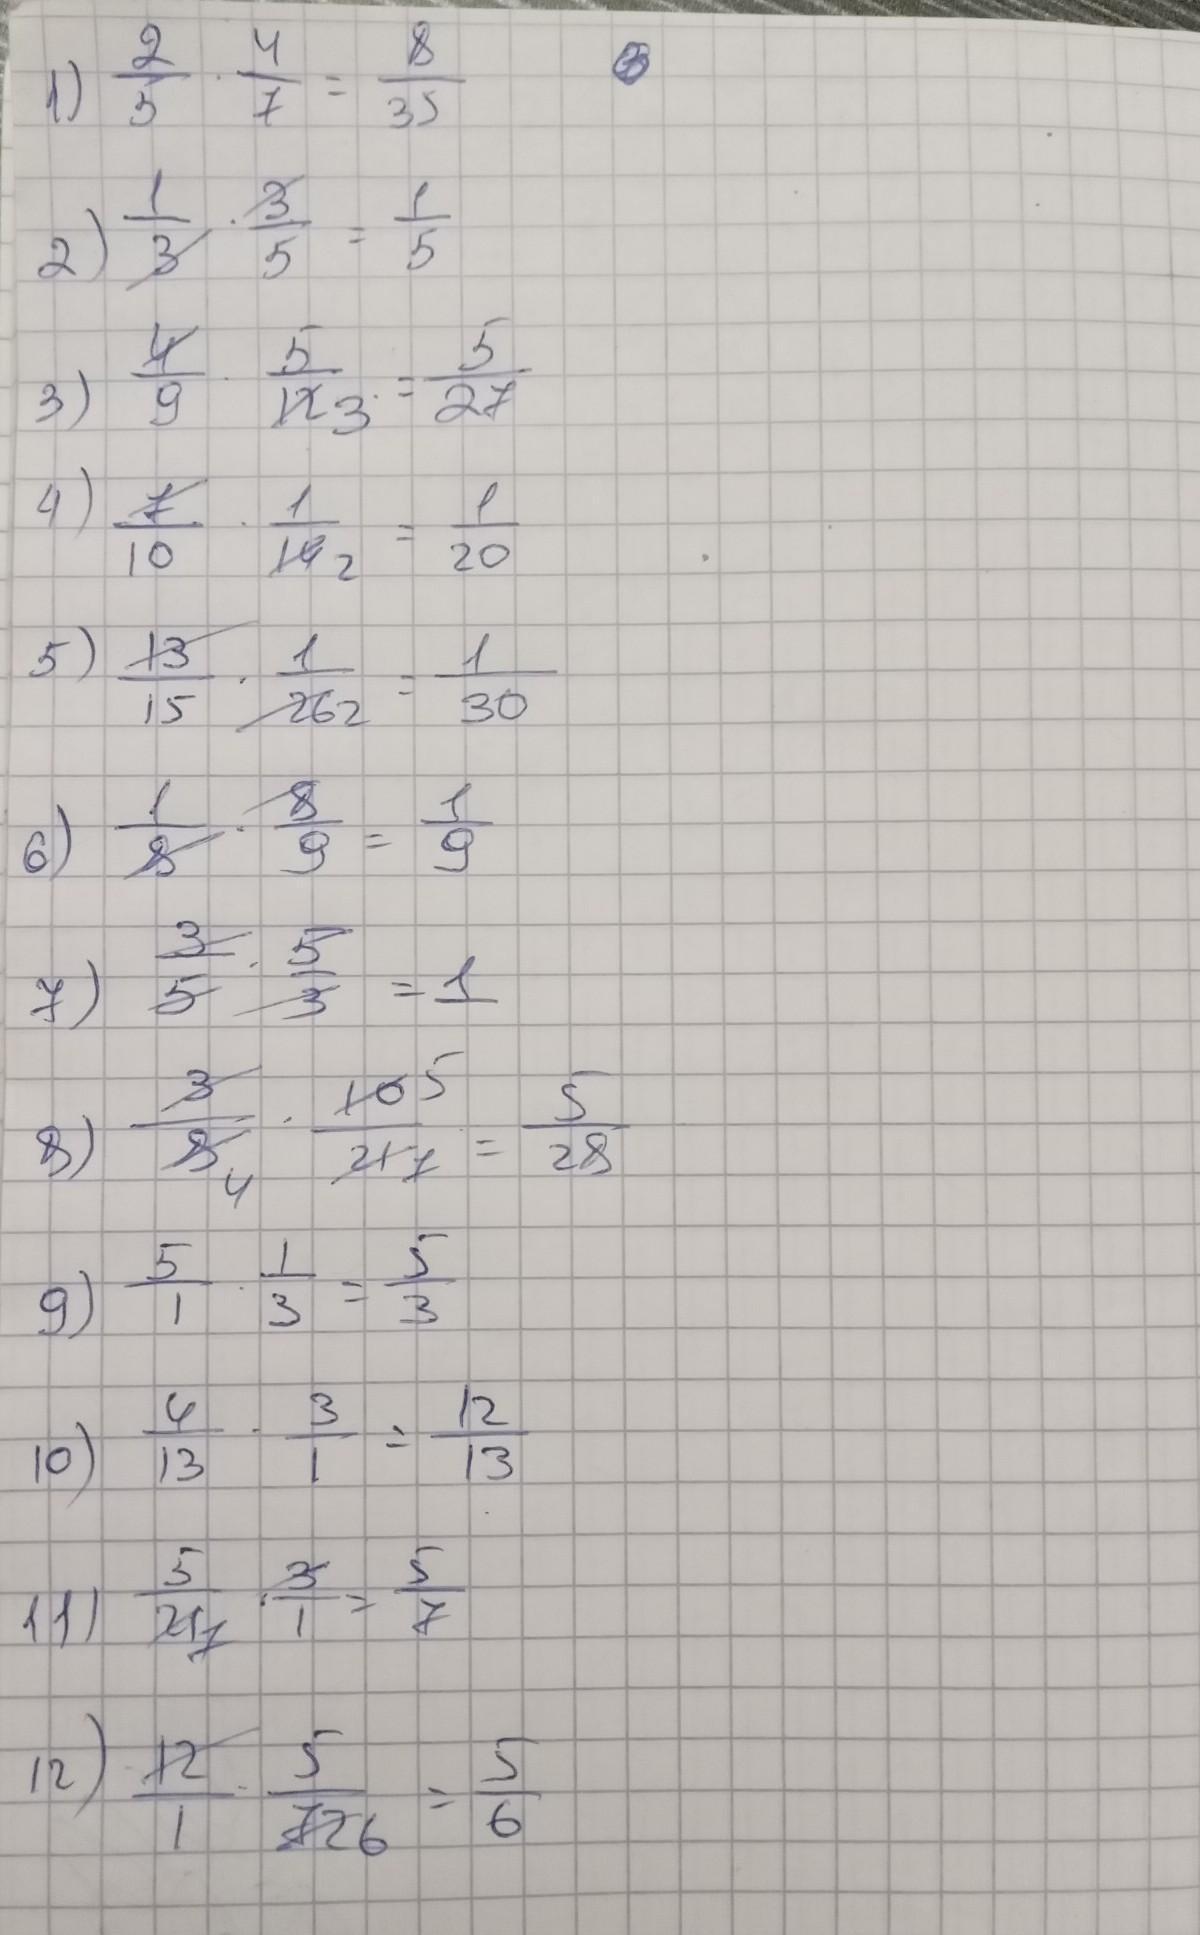 1) 2/5 · 4/7 = 8/35
2) 1/3 · 3/5 = 1/5
3) 4/9 · 5/12 3 = 5/27
4) 7/10 · 1/14 2 = 1/20
5) 13/15 · 1/26 2 = 1/30
6) 1/8 · 8/9 = 1/9
7) 3/5 · 5/3 = 1
8) 3/8 4 · 10 5/21 7 = 5/28
9) 5/1 · 1/3 = 5/3
10) 4/13 · 3/1 = 12/13
11) 5/21 7 · 3/1 = 5/7
12) 12/1 · 5/72 6 = 5/6